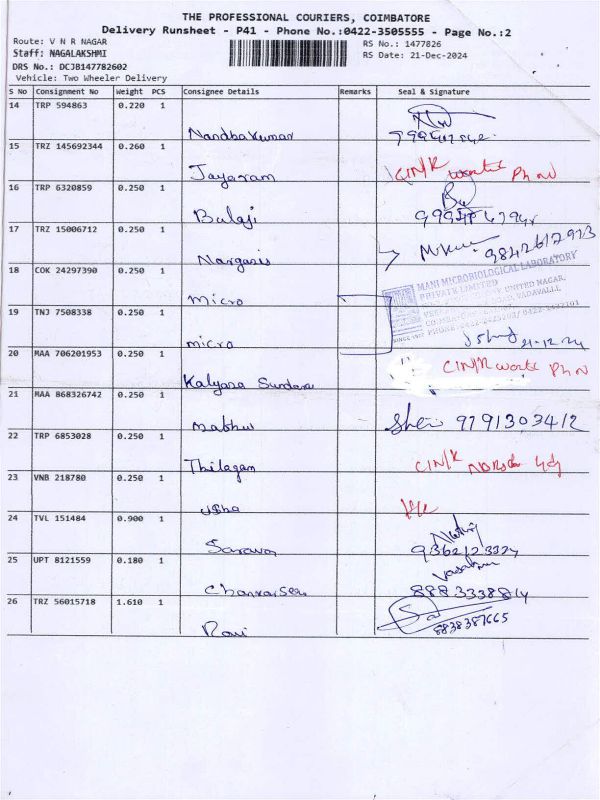 THE PROFESSIONAL COURIERS, COIMBATORE
Delivery Runsheet - P41 - Phone No.:0422-3505555 - Page No.:2
Route: V N R NAGAR
RS No.: 1477826
Staff: NAGALAKSHMI
RS Date: 21-Dec-2024
DRS No.: DCJB147782602
Vehicle: Two Wheeler Delivery
S No Consignment No Weight PCS Consignee Details Remarks Seal & Signature
14 TRP 594863 0.220 1
Nandbakumar
15 TRZ 145692344 0.260 1
Jayaram
16 TRP 6320859 0.250 1
Balaji
17 TRZ 15006712 0.250 1
Nargasis 9842612973
18 COK 24297390 0.250 1
MANI MICROBIOLOGICAL LABORATORY
PRIVATE LIMITED
UNITED NAGAR,
VADAVALLI,
micro
19 TNJ 7508338 0.250 1
micro 21-12-24
20 MAA 706201953 0.250 1
Kalyana Sundara
21 MAA 868326742 0.250 1
Mabhu 9791303412
22 TRP 6853028 0.250 1
Thilagam
23 VNB 218780 0.250 1
Usha
24 TVL 151484 0.900 1
Saravan 9362123327
25 UPT 8121559 0.180 1
8883338814
26 TRZ 56015718 1.610 1
Ravi 8838387665